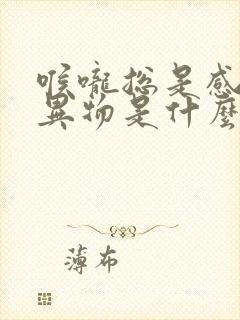 喉嚨總是感
異物是什麼
薄布